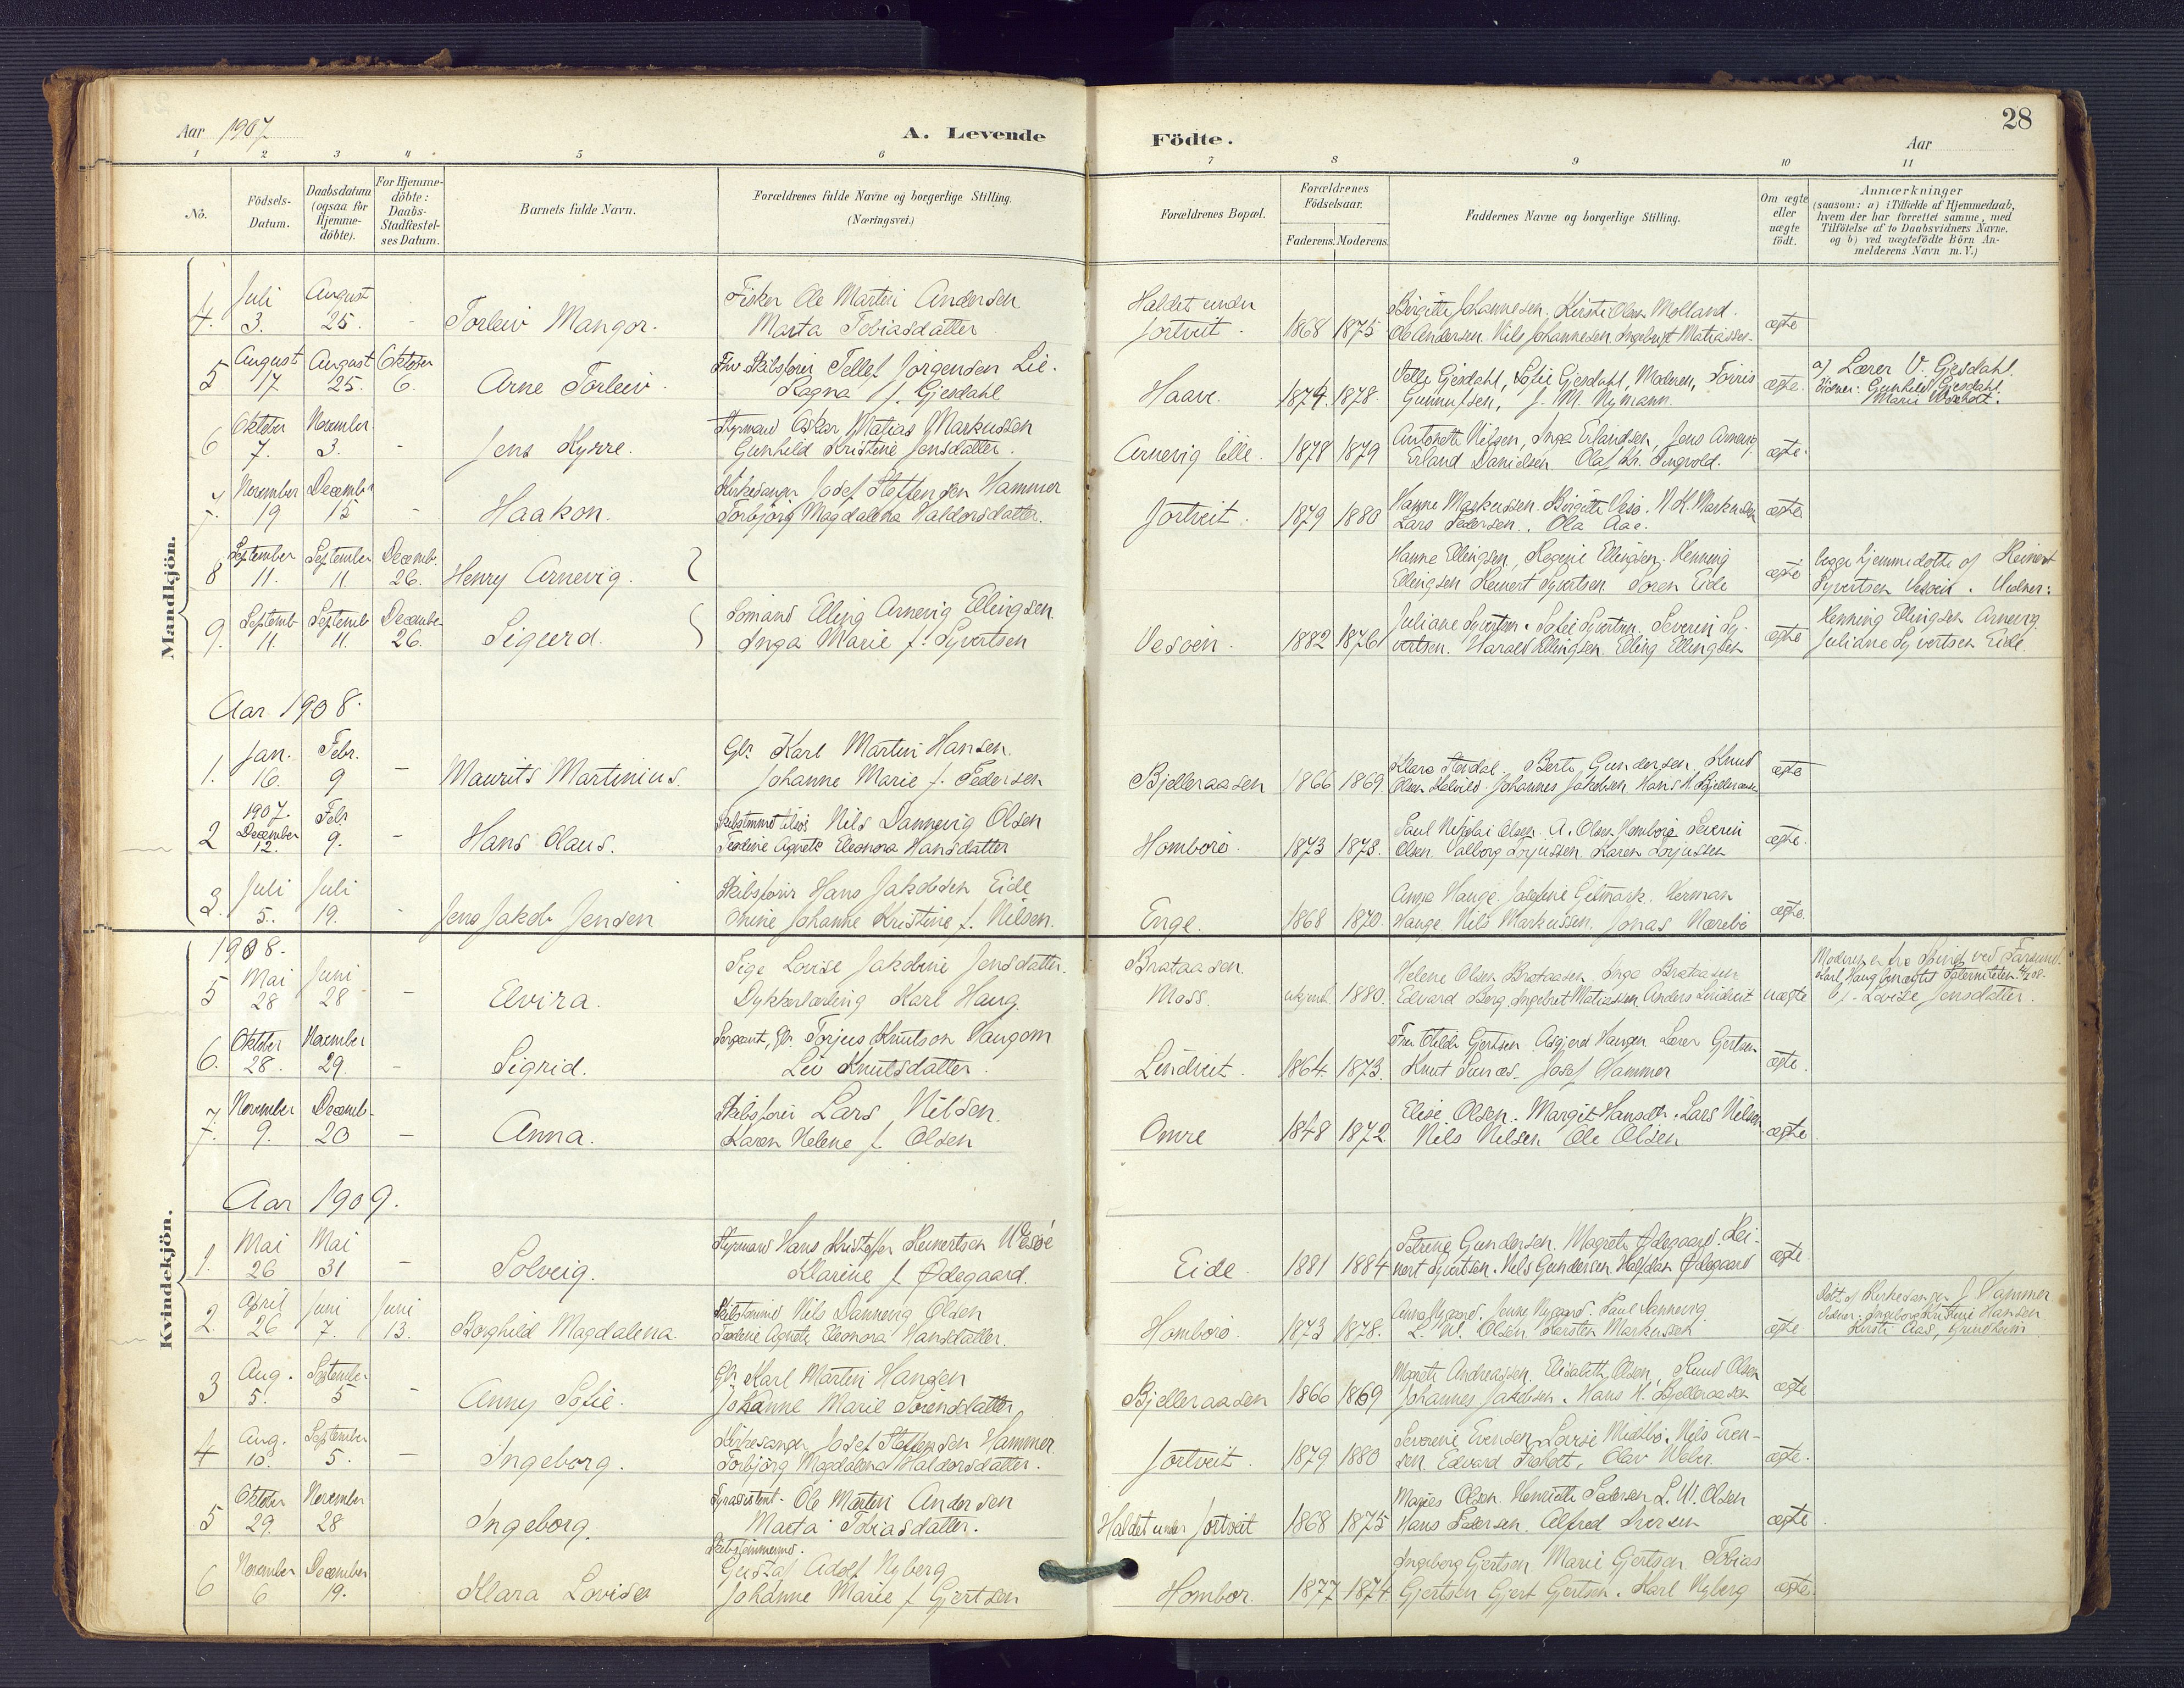 28
Aar 1907
A. Levende
Födte.
Aar
1 2 3 4 5 6 7 8 9 10 11
No.
Födsels-Datum.
Daabsdatum (ogsaa for Hjemme-döbte).
For Hjemme-döbte: Daabs-Stadfæstel-ses Datum.
Barnets fulde Navn.
Forældrenes fulde Navne og borgerlige Stilling. (Næringsvei.)
Forældrenes Bopæl.
Forældrenes Födselsaar.
Faderens. Moderens.
Faddernes Navne og borgerlige Stilling.
Om ægte eller uægte födt.
Anmærkninger
(saasom: a) i Tilfælde af Hjemmedaab,
hvem der har forrettet samme, med
Tilföielse af to Daabsvidners Navne.
og b) ved uægtefödte Börn An-
melderens Navn m. V.)
Mandkjön.
4. Juli 3. August 25. - Torleiv Mangor. Fisker Ole Martin Andersen
Marta Tobiasdatter
Haldet under Jortveit. 1868 1875 Birgitte Johannesen, Kirsti Olsen Molland.
Ole Andersen. Nils Johannesen. Ingebrigt Matiassen. ægte
5 August 17. August 25. Oktober 6. Arne Torleiv. Fhv Skibsfører Tellef Jörgensen Lie.
Ragna f. Gjesdahl
Haave. 1874. 1878. Velle Gjesdahl, Sofie Gjesdahl, Moderen, Torris
Gunnufsen, J. M. Nymann. ægte.
a) Lærer V. Gjesdahl.
Vidner: Gunhild Gjesdahl.
6 Oktober 7. November 3. - Jens Kyrre. Styrmand Oskar Matias Markussen
Gunhild Kristine Jensdatter.
Arnevig lille. 1878 1879 Antonette Nilsen, Inga Erlandsen, Jens Arnevig
Erland Danielsen. Olaf Kr. Tingvold. ægte.
7. November 19 December 15 - Haakon. Kirkesanger Josef Steffensen Hammer
Torbjörg Magdalena Haldorsdatter.
Jortveit. 1879 1880 Hanne Markussen. Birgitte Vesö. N. K. Markussen
Lars Pedersen. Ola Aas. ægte
8 September 11. September 11 Decemb. 26. Henry Arnevig.
Hanne Ellingsen, Regine Ellingsen. Henning
Ellingsen Reinert Syvertsen. Soren Eide ægte
begge hjemmedøbte af Reinert
Syvertsen Vesøen. Vidner:
9. Septemb 11. Septemb 11. Decembe 26. Sigurd. Sömand Elling Arnevig Ellingsen.
Inga Marie f. Syvertsen
Vesøen. 1882 1876 Juliane Syvertsen. Sofie Syvertsen. Severin Sy-
vertsen. Harald Ellingsen. Elling Ellingsen ægte
Henning Ellingsen Arnevig
Juliane Syvertsen Eide.
Aar 1908.
1. Jan. 16. Febr. 9 - Maurits Martinius. Gbr. Karl Martin Hansen.
Johanne Marie f. Pedersen
Bjelleraasen 1866 1869 Klara Stendal. Berte Gundersen. Knud
Olsen Kalvild. Johannes Jakobsen. Hans H. Bjelleraasen ægte
2 1907. December 12. Feb. 9. - Hans Olaus. Nils Dannevig Olsen
Teodine Agnete Eleonora Hansdatter
Homborö. 1873 1878. Paul Nikolai Olsen. A. Olsen Homborö Severin
Olsen. Valborg Torjussen. Karen Torjussen ægte.
3. Juli 5. Juli 19. - Jens Jakob Jensen Skibsfører Hans Jakobsen Eide
Mine Johanne Kristine f. Nilsen.
Enge. 1868 1870. Anna Hauge. Josefine Gitmark. Herman
Hauge. Nils Markussen. Jonas Nærebö ægte.
Kvindekjön.
1908.
5 Mai 28 Juni 28 - Elvira. Pige Lovise Jakobine Jensdatter.
Dykkerlærling Karl Haug
Brataasen
Moss. ukjendt 1880. Helene Olsen Brataasen Inga Brataasen
Edvard Berg. Ingebret Matiassen Anders Lindtveit uægte
Moderen er fra Spind ved Farsund.
Karl Haug benægter Paterniteten
b) Lovise Jensdatter.
6. Oktober 28. November 29. - Sigrid. Sergeant, Gbr. Torjus Knutson Haugom
Liv Knutsdatter.
Lindtveit. 1864. 1873. Fru Otilde Gjertsen Asgjerd Haugen Lærer Gjertsen
Knut Josef Hammer ægte.
7. November 9. Decemb. 20 - Anna. Skibsfører Lars Nilsen.
Karen Helene f. Olsen
Omre 1848 1872. Elise Olsen. Margit Hansdt. Lars Nilsen
Nils Nilsen Ole Olsen ægte
Aar 1909.
1. Mai 26 Mai 31 - Solveig. Styrmand Hans Kristoffer Reinertsen Vesöe
Klarine f Ødegaard.
Eide. 1881 1884 Petrine Gundersen. Magrete Ødegaard. Rei-
nert Syvertsen. Nils Gundersen. Halfdan Ødegaard ægte
2. April 26 Juni 7. Juni 13. Borghild Magdalena. Skibstömmermd Nils Dannevig Olsen
Teodine Agnete Eleonora Hansdatter.
Homborö. 1873 1878. Anna Nygaard. Jenne Nygaard. Paul Dannevig.
L. W. Olsen. Karsten Markussen ægte
Döbt af Kirkesanger J Hammer
Vidner. Ingeborg Kristine Hansen
Kirsti Aas, Grundheim
3 Aug. 5. September 5 - Anny Sofie. Gbr Karl Martin Hansen
Johanne Marie Sörensdatter
Bjelleraasen 1866 1869 Magrete Andreassen. Elisabeth Olsen, Knud Olsen
Johannes Jakobsen. Hans H. Bjelleraasen ægte
4 Aug. 10. September 5. - Ingeborg. Kirkesanger Josef Steffensen Hammer.
Torbjörg Magdalena Haldorsdatter.
Jortveit. 1879 1880 Severine Evensen Lovise Midtbö. Nils Even-
sen. Edvard Olav Weber. ægte.
5 Oktober 29. November 28 Ingeborg. Fyrassistent. Ole Martin Andersen
Marta Tobiasdatter.
Haldet under Jortveit 1868 1875 Maries Olsen Henriette Pedersen L. W. Olsen
Hans Pedersen. Alfred Iversen ægte.
6 November 6 December 19. Klara Lovise Skibstömmermd.
Gustaf Adolf Nyberg
Johanne Marie f Gjertsen
Hombor. 1877 1874 Ingeborg Gjertsen Marie Gjertsen Tobias
Gjertsen Gjert Gjertsen. Karl Nyberg ægte.